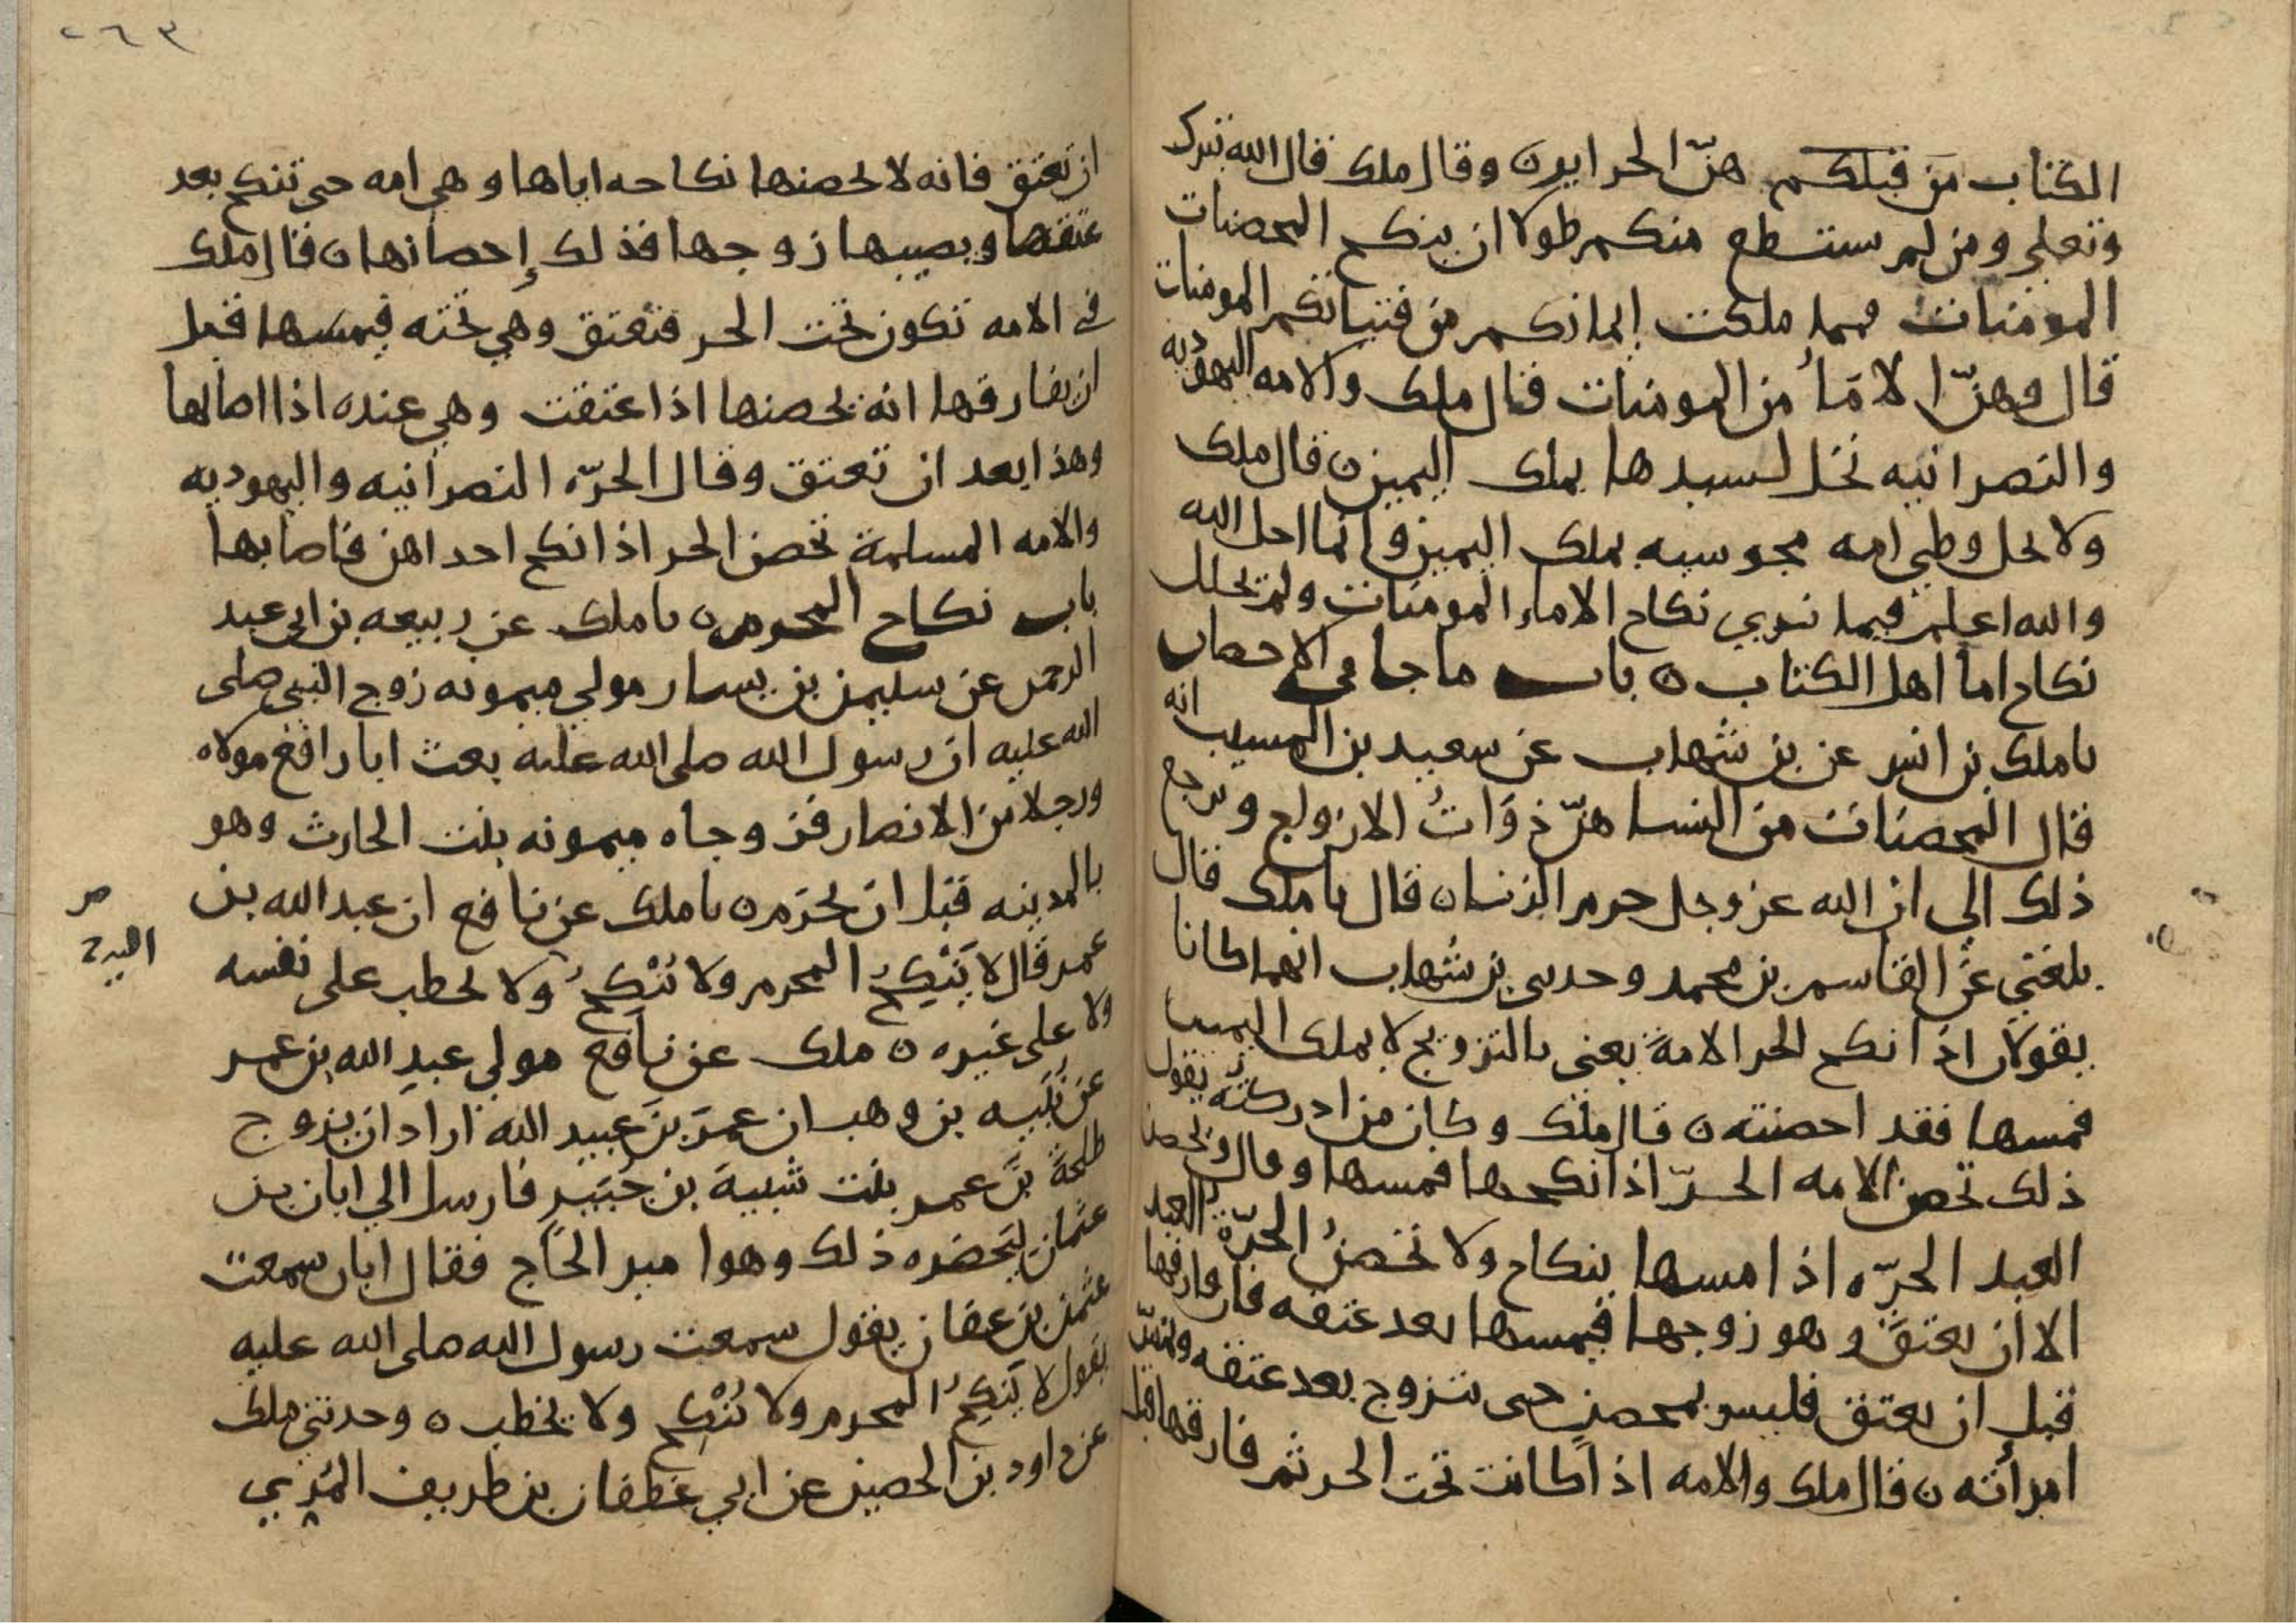 الكتاب من قبلكم هنّ الحراير ٥ وقال ملك قال الله تبرك
وتعلي ومن لم يستطع منكم طولا ان ينكح المحصنات
المومنات فمما ملكت ايمانكم من فتياتكم المومنات
قال فهنّ الامَاُ من المومنات قال ملك والامه اليهوديه
والنصرانيه تحل لسيدها بملك اليمين ٥ قال ملك
ولا يحل وطي امه مجوسيه بملك اليمين وانما احل الله
والله اعلم فيما نري نكاح الاماء المومنات ولم يحلل
نكاح اما اهل الكتاب ٥ باب ما جا في الاحصان
نا ملك بن انس عن بن شهاب عن سعيد بن المسيب انه
قال المحصنات من النسا هنّ ذوَاتُ الازواج ويرجع
ذلك الي ان الله عز وجل حرم الزنا ٥ قال نا ملك قال
بلغني عن القاسم بن محمد وحدثني بن شهاب انهما كانا
يقولان اذا نكح الحر الامة يعني بالتزويج لا بملك اليمين
فمسها فقد احصنته ٥ قال ملك وكان من ادركته يقول
ذلك تحصن الامه الحرّ اذا نكحها فمسها وقال ويحصن
العبد الحرّه اذا مسها بنكاح ولا تحصنُ الحرّة العبد
الا ان يعتق وهو زوجها فيمسها بعد عتقه فان فارقها
قبل ان يعتق فليس بمحصنٍ حتى يتزوج بعد عتقه ويمسّ
امرأته ٥ قال ملك والامه اذا كانت تحت الحر ثم فارقها قبل
٢٦٣
ان تعتق فانه لا يحصنها نكاحه اياها وهي امه حتى تنكح بعد
عتقها ويصيبها زوجها فذلك إحصانها ٥ قال ملك
في الامه تكون تحت الحر فتعتق وهي تحته فيمسها قبل
ان يفارقها انه يحصنها اذا عتقت وهي عنده اذا اصابها
وهذا بعد ان تعتق وقال الحرّه النصرانيه واليهوديه
والامه المسلمة تحصن الحر اذا نكح احداهن فاصابها
باب نكاح المحرم ٥ نا ملك عن ربيعه بن ابي عبد
الرحمن عن سليمن بن يسار مولي ميمونه زوج النبي صلى
الله عليه ان رسول الله صلى الله عليه بعث ابا رافع مولاه
ورجلا من الانصار فزوجاه ميمونه بنت الحارث وهو
بالمدينه قبل ان يحرم ٥ نا ملك عن نافع ان عبد الله بن
عمر قال لا يَنْكِحُ المحرم ولا يُنْكِحُ ولا يخطب على نفسه
ولا على غيره ٥ ملك عن نافع مولي عبدِ الله بن عمر
عن نُبَيه بن وهب ان عمرَ بنَ عبيد الله اراد ان يزوج
طلحةَ بنَ عمر بنت شيبة بن جُبَيرٍ فارسل الي ابان بن
عثمان ليَحضره ذلك وهو امير الحَاج فقال ابان سمعت
عثمن بن عفان يقول سمعت رسول الله صلى الله عليه
يقول لا يَنكِحُ المحرم ولا يُنْكِح ولا يخطب ٥ وحدثني ملك
عن داود بن الحصين عن ابي غطفان بن طريف المُرِّي